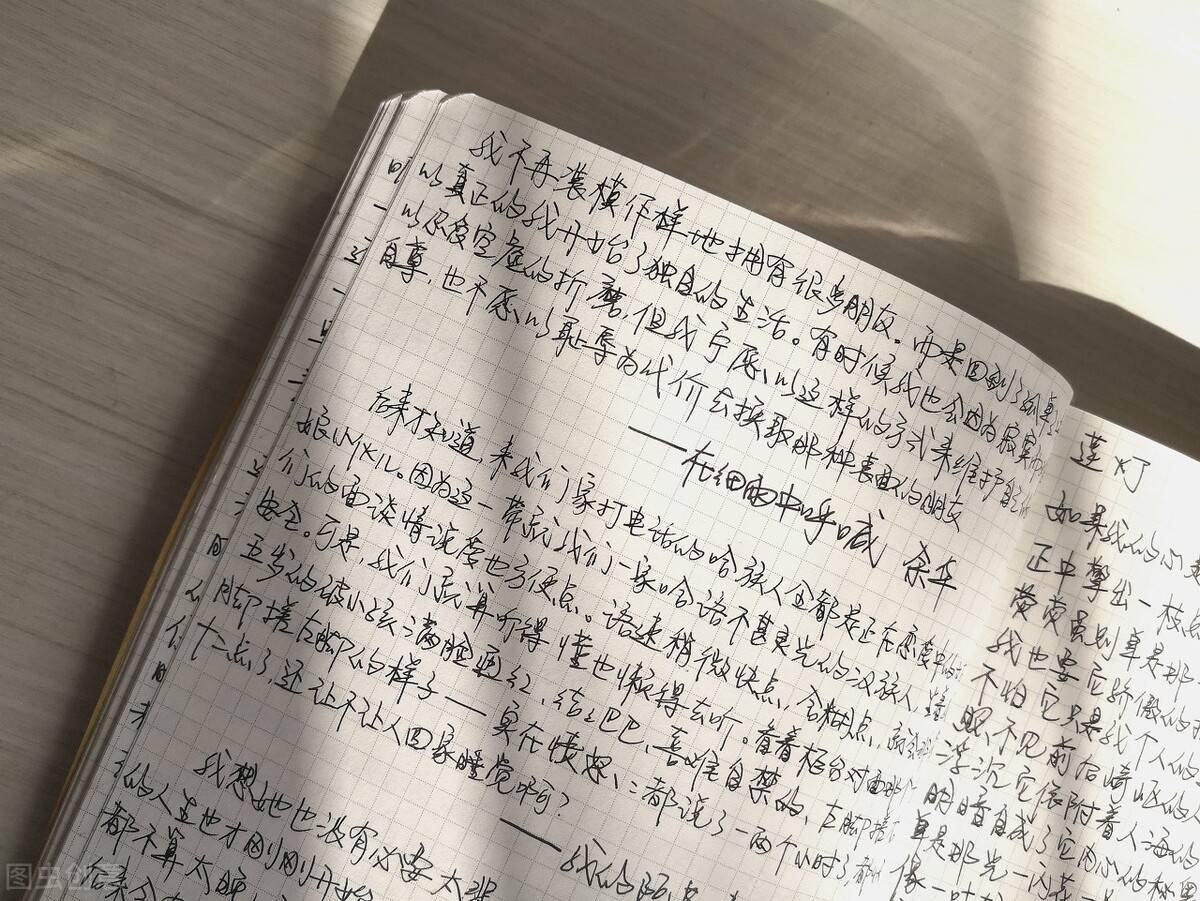 我不再装模作样地拥有很多朋友。而是回到了孤单之
以真正的我开始了独自的生活。有时候我也会因为寂寞而
以忍受空虚的折磨，但我宁愿以这样的方式来维护自己的
自尊，也不愿以耻辱为代价去换取那种表面的朋友
——在细雨中呼喊 余华
后来才知道，来我们家打电话的哈族人全都是正在恋爱中的
娘小伙儿。因为这一带就我们一家哈语不甚灵光的汉族人，
们的面谈情说爱也方便点。语速稍微快点，含糊点，
安全。可是，我们就算听得懂也懒得去听。看着柜台对面那个
五岁的破小孩满脸通红、结结巴巴、喜难自禁的，左脚搓
脚搓左脚的样子——实在愤怒，都说了一两个小时了，都
十二点了，还让不让人回家睡觉啊？
——我的阿
我想她也没有必要太
的人生也才刚刚开始
都不算太晚
莲灯
如果我的心是
正中擎出一枝
荧荧虽则单是那
我也要它骄傲的
不怕它只是我个人的
照不见前后崎岖的
浮沉它依附着人海的
明暗自成了它内心的秘奥
单是那光一闪花一
像一叶
图虫创意